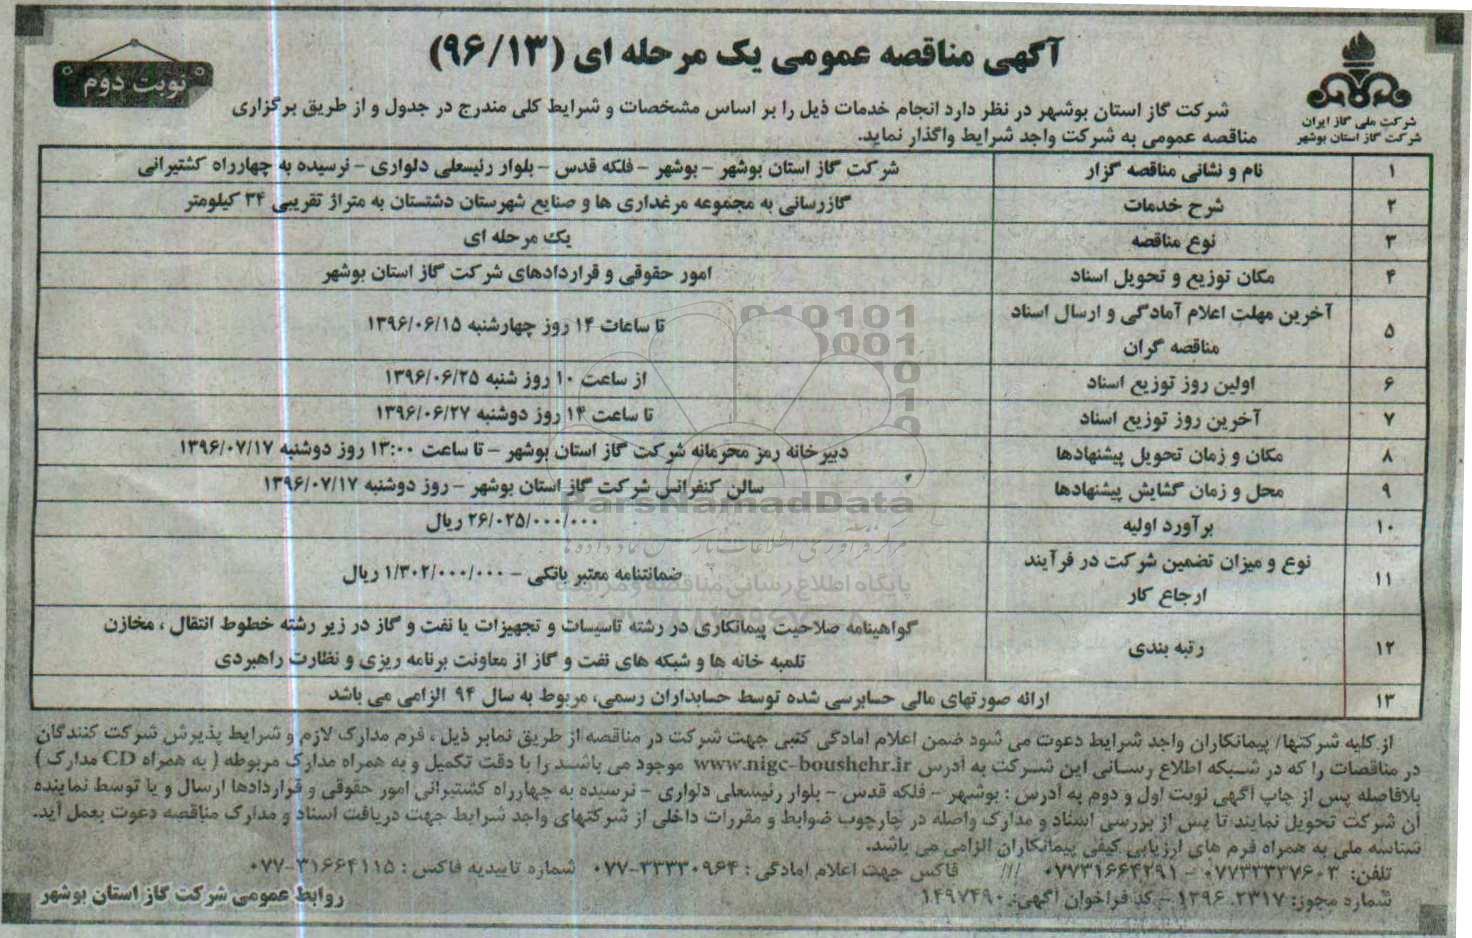 آگهی مناقصه عمومی یک مرحله ای (۹۶/۱۳)
نوبت دوم
شرکت ملی گاز ایران
شرکت گاز استان بوشهر
شرکت گاز استان بوشهر در نظر دارد انجام خدمات ذیل را بر اساس مشخصات و شرایط کلی مندرج در جدول و از طریق برگزاری
مناقصه عمومی به شرکت واجد شرایط واگذار نماید.
۱ نام و نشانی مناقصه گزار شرکت گاز استان بوشهر – بوشهر – فلکه قدس – بلوار رئیسعلی دلواری – نرسیده به چهارراه کشتیرانی
۲ شرح خدمات گازرسانی به مجموعه مرغداری ها و صنایع شهرستان دشتستان به متراژ تقریبی ۳۴ کیلومتر
۳ نوع مناقصه یک مرحله ای
۴ مکان توزیع و تحویل اسناد امور حقوقی و قراردادهای شرکت گاز استان بوشهر
۵ آخرین مهلت اعلام آمادگی و ارسال اسناد
مناقصه گران تا ساعات ۱۴ روز چهارشنبه ۱۳۹۶/۰۶/۱۵
۶ اولین روز توزیع اسناد از ساعت ۱۰ روز شنبه ۱۳۹۶/۰۶/۲۵
۷ آخرین روز توزیع اسناد تا ساعت ۱۴ روز دوشنبه ۱۳۹۶/۰۶/۲۷
۸ مکان و زمان تحویل پیشنهادها دبیرخانه رمز محرمانه شرکت گاز استان بوشهر – تا ساعت ۱۳:۰۰ روز دوشنبه ۱۳۹۶/۰۷/۱۷
۹ محل و زمان گشایش پیشنهادها سالن کنفرانس شرکت گاز استان بوشهر – روز دوشنبه ۱۳۹۶/۰۷/۱۷
۱۰ برآورد اولیه ۲۶/۰۲۵/۰۰۰/۰۰۰ ریال
۱۱ نوع و میزان تضمین شرکت در فرآیند
ارجاع کار ضمانتنامه معتبر بانکی – ۱/۳۰۲/۰۰۰/۰۰۰ ریال
۱۲ رتبه بندی گواهینامه صلاحیت پیمانکاری در رشته تاسیسات و تجهیزات یا نفت و گاز در زیر رشته خطوط انتقال ، مخازن
تلمبه خانه ها و شبکه های نفت و گاز از معاونت برنامه ریزی و نظارت راهبردی
۱۳ ارائه صورتهای مالی حسابرسی شده توسط حسابداران رسمی، مربوط به سال ۹۴ الزامی می باشد
از کلیه شرکتها/ پیمانکاران واجد شرایط دعوت می شود ضمن اعلام امادگی کتبی جهت شرکت در مناقصه از طریق نمابر ذیل ، فرم مدارک لازم و شرایط پذیرش شرکت کنندگان
در مناقصات را که در شبکه اطلاع رسانی این شرکت به آدرس www.nigc-boushehr.ir موجود می باشد را با دقت تکمیل و به همراه مدارک مربوطه ( به همراه CD مدارک )
بلافاصله پس از چاپ آگهی نوبت اول و دوم به آدرس : بوشهر – فلکه قدس – بلوار رئیسعلی دلواری – نرسیده به چهارراه کشتیرانی امور حقوقی و قراردادها ارسال و یا توسط نماینده
آن شرکت تحویل نمایند تا پس از بررسی اسناد و مدارک واصله در چارچوب ضوابط و مقررات داخلی از شرکتهای واجد شرایط جهت دریافت اسناد و مدارک مناقصه دعوت بعمل آید.
شناسه ملی به همراه فرم های ارزیابی کیفی پیمانکاران الزامی می باشد.
تلفن: ۰۷۷۳۳۳۲۷۶۰۳ – ۰۷۷۳۱۶۶۴۲۹۱ /// فاکس جهت اعلام امادگی : ۰۷۷-۳۳۳۳۰۹۶۴ شماره تاییدیه فاکس : ۰۷۷-۳۱۶۶۴۱۱۵
شماره مجوز: ۱۳۹۶.۲۳۱۷ – کد فراخوان آگهی: ۱۴۹۷۴۹۰
روابط عمومی شرکت گاز استان بوشهر
ParsNamadData